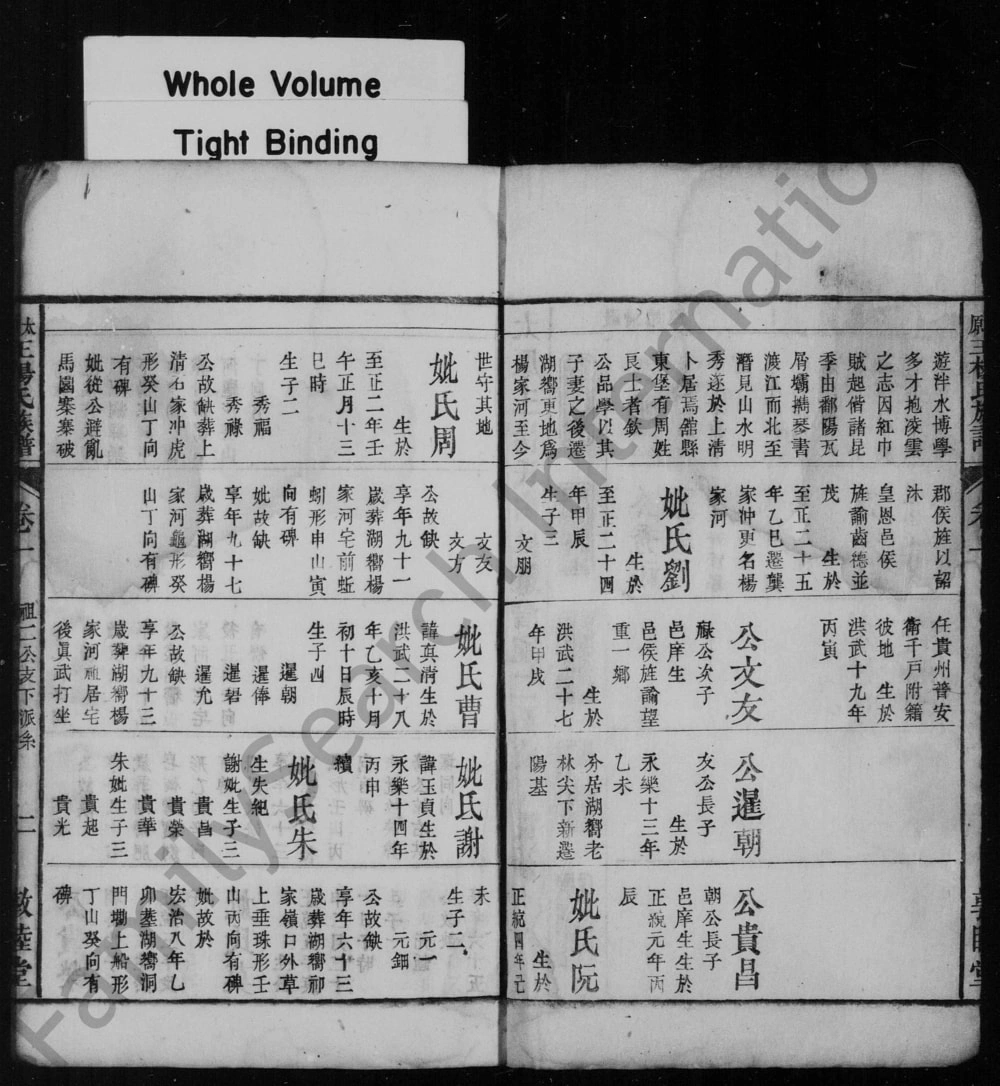 Whole Volume
Tight Binding
遊泮水博學
多才抱凌雲
之志因紅巾
賊起偕諸昆
季由鄱陽瓦
屑壩携琴書
渡江而北至
潛見山水明
秀遂於上清
卜居焉舘縣
東堡有周姓
艮士者欽
公品學以其
子妻之後遷
湖嚮更地爲
楊家河至今
世守其地
妣氏周
生於
至正二年壬
午正月十三
巳時
生子二
秀福
秀祿
公故缺葬上
清石家冲虎
形癸山丁向
有碑
妣從公避亂
馬園寨寨破
郡侯旌以詔
沐
皇恩邑侯
旌諭齒德並
茂
生於
至正二十五
年乙巳遷龔
家冲更名楊
家河
妣氏劉
生於
至正二十四
年甲辰
生子三
文朋
文友
文方
公故缺
享年九十一
歲葬湖嚮楊
家河宅前蚯
蚓形申山寅
向有碑
妣故缺
享年九十七
歲葬湖嚮楊
家河龜形癸
山丁向有碑
任貴州普安
衛千戸附籍
彼地
生於
洪武十九年
丙寅
公文友
祿公次子
邑庠生
邑侯旌諭望
重一鄉
生於
洪武二十七
年甲戌
妣氏曹
諱真清生於
洪武二十八
年乙亥十月
初十日辰時
生子四
暹朝
暹俸
暹碧
暹允
公故缺
享年九十三
歲葬湖嚮楊
家河祖居宅
後真武打坐
公暹朝
友公長子
生於
永樂十三年
乙未
分居湖嚮老
林尖下新遷
陽基
妣氏謝
諱玉貞生於
永樂十四年
丙申
續
妣氏朱
生失紀
謝妣生子三
貴昌
貴榮
貴華
朱妣生子三
貴起
貴光
公貴昌
朝公長子
邑庠生生於
正統元年丙
辰
妣氏阮
生於
正統四年己
未
生子二
元一
元鈿
公故缺
享年六十三
歲葬湖嚮祁
家嶺口外草
上垂珠形壬
山丙向有碑
妣故於
宏治八年乙
卯塟湖嚮洞
門塲上船形
丁山癸向有
碑
太
王楊氏族譜
卷一
祖一公支下派系
二
敦睦堂
FamilySearch International